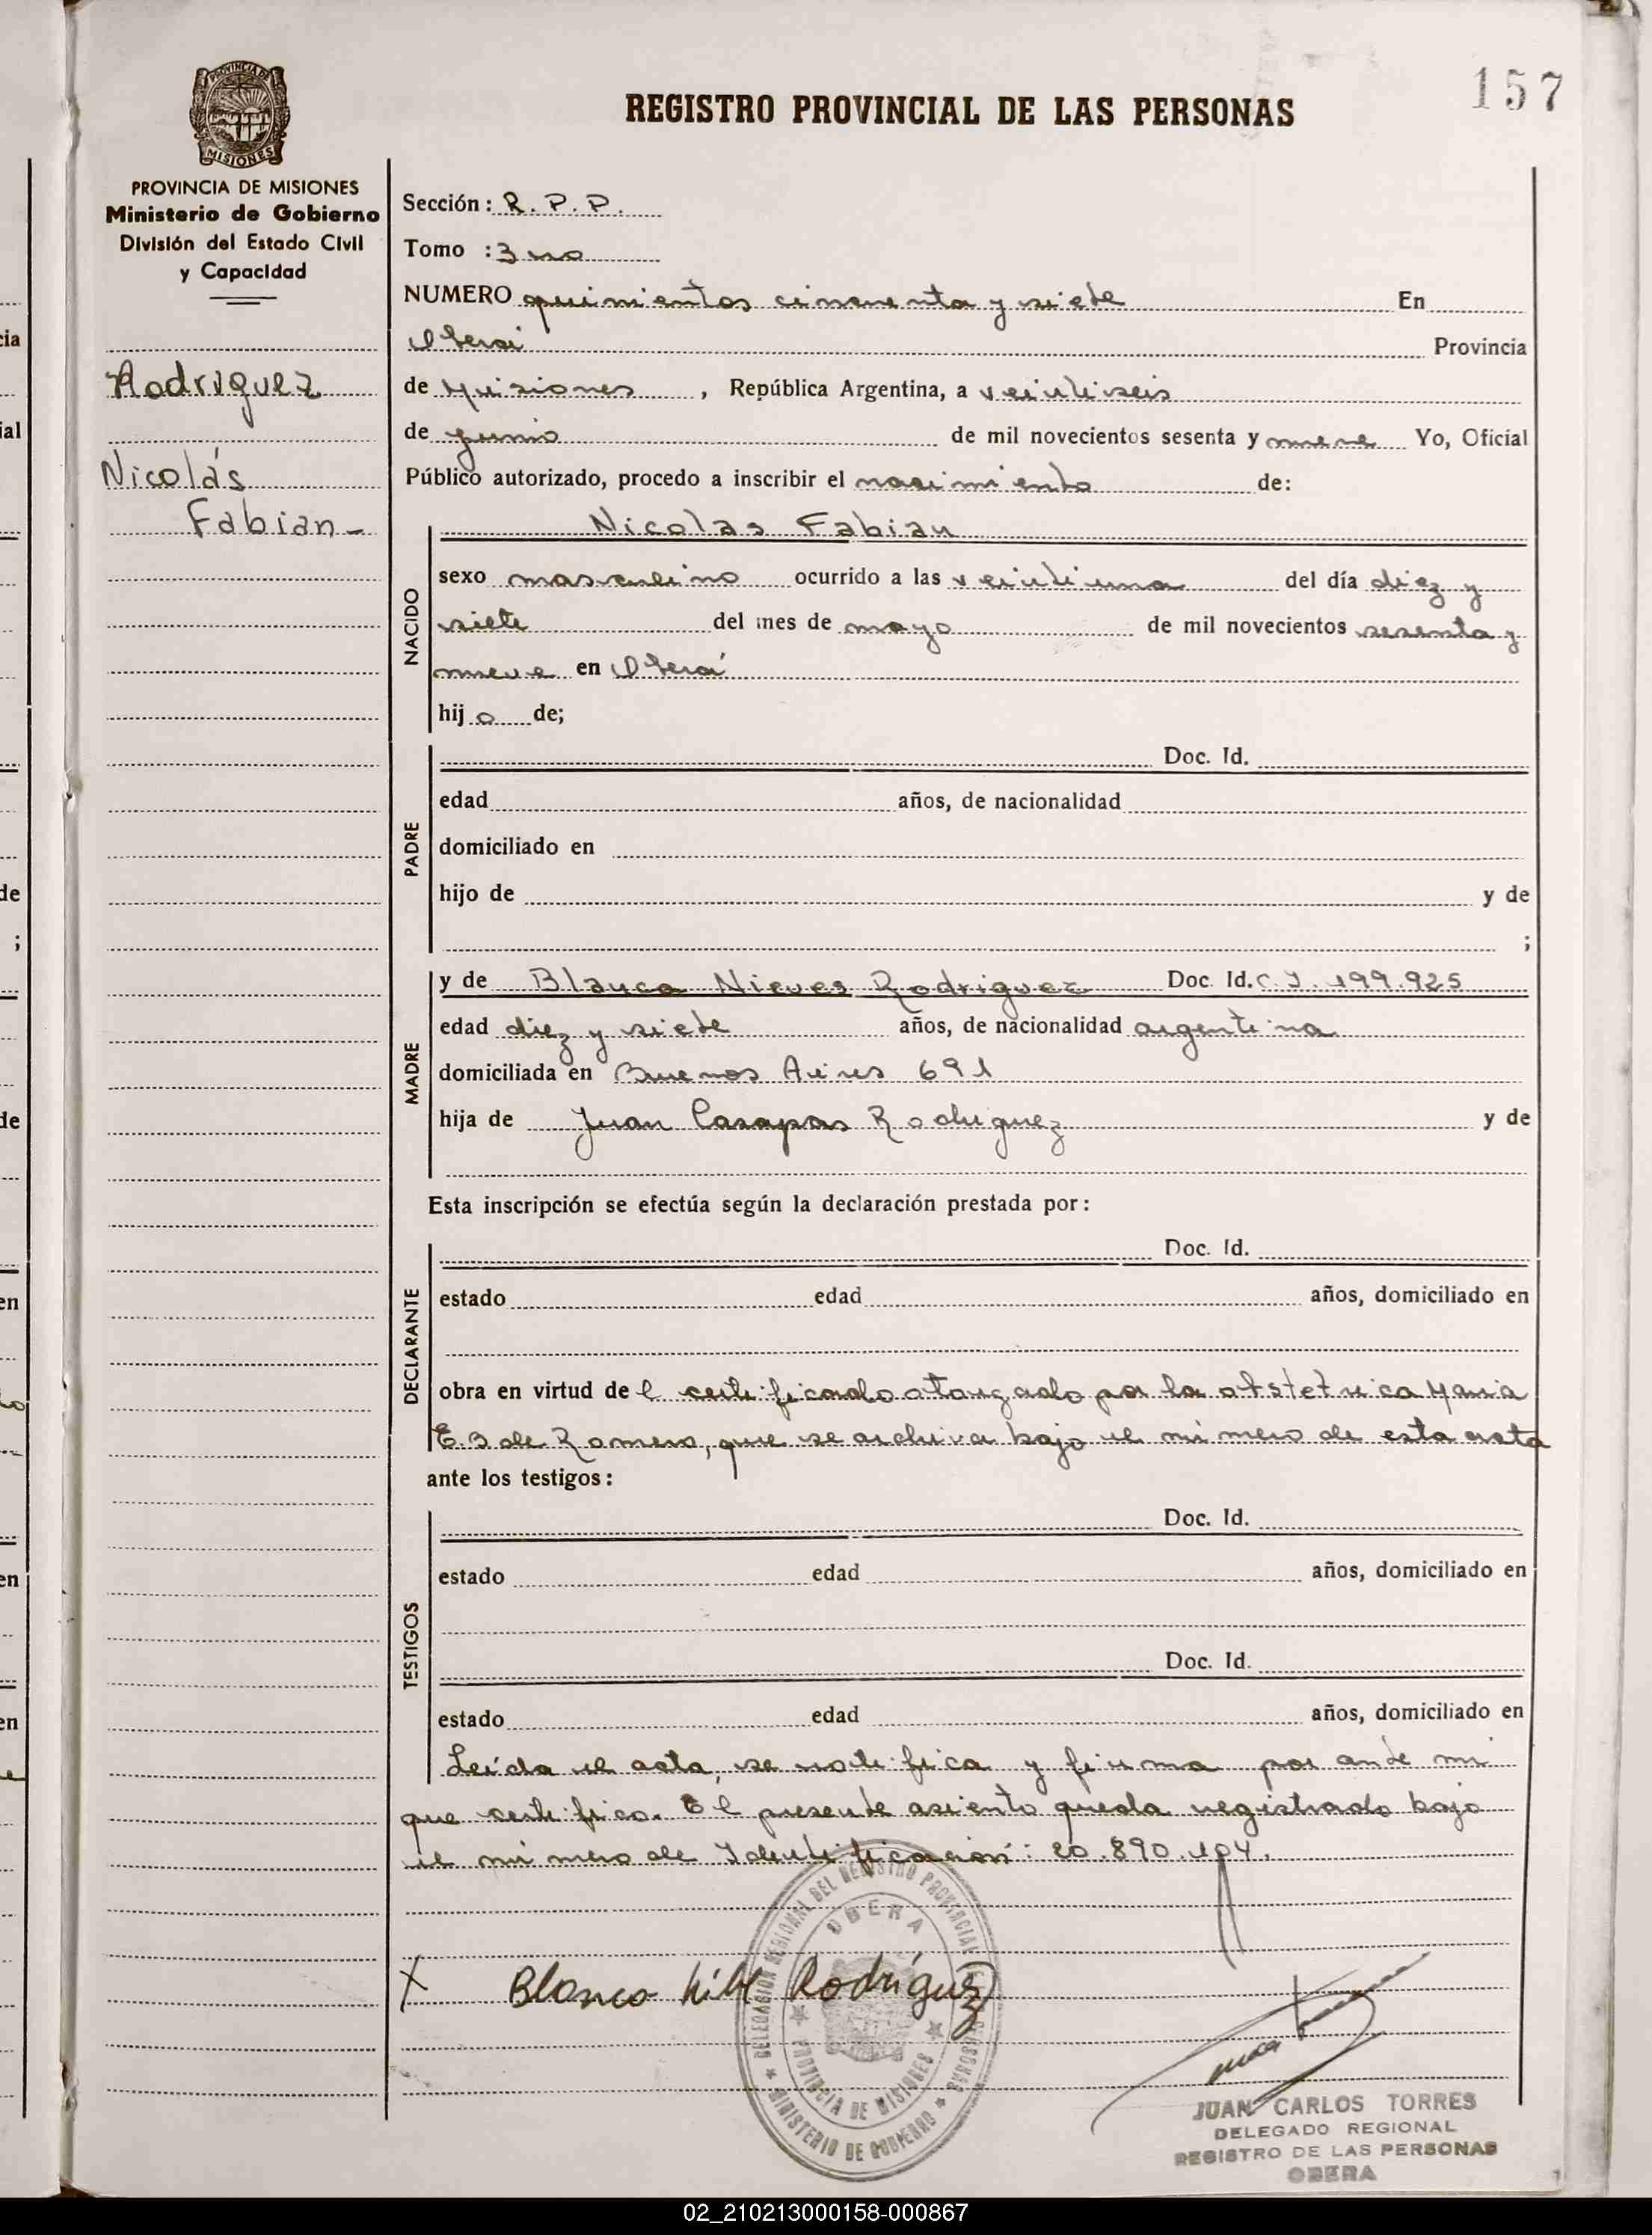 157
REGISTRO PROVINCIAL DE LAS PERSONAS
PROVINCIA DE MISIONES
MISIONES
PROVINCIA DE MISIONES
Ministerio de Gobierno
División del Estado Civil
y Capacidad
Rodriguez
Nicolás
Fabian-
Sección: R. P. P.
Tomo :3
NUMERO quinientos cincuenta y siete En
Oberá Provincia
de Misiones, República Argentina, a veintiseis
de junio de mil novecientos sesenta y nueve Yo, Oficial
Público autorizado, procedo a inscribir el nacimiento de:
Nicolas Fabian
NACIDO
sexo masculino ocurrido a las veintiuna del día diez y
siete del mes de mayo de mil novecientos sesenta y
nueve en Oberá
hijo de;
PADRE
Doc. Id.
edad años, de nacionalidad
domiciliado en
hijo de y de
;
MADRE
y de Blanca Nieves Rodriguez Doc. Id. C. I. 199.925
edad diez y siete años, de nacionalidad argentina
domiciliada en Buenos Aires 691
hija de Juan Rodriguez y de
Esta inscripción se efectúa según la declaración prestada por:
DECLARANTE
Doc. Id.
estado edad años, domiciliado en
obra en virtud del certificado otorgado por la obstetrica Maria
E. B de Romero, que se archiva bajo el número de esta acta
ante los testigos:
TESTIGOS
Doc. Id.
estado edad años, domiciliado en
Doc. Id.
estado edad años, domiciliado en
Leída el acta, se notifica y firma por ante mi
que certifico. El presente asiento queda registrado bajo
el número de Identificación: 20.890.104.
DELEGACION REGIONAL DEL REGISTRO PROVINCIAL DE LAS PERSONAS
OBERA
PROVINCIA DE MISIONES
MINISTERIO DE GOBIERNO
X Blanca Rodríguez
JUAN CARLOS TORRES
DELEGADO REGIONAL
REGISTRO DE LAS PERSONAS
OBERA
02_210213000158-000867